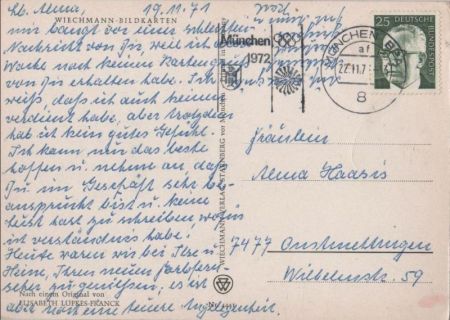 Lb. Alma, 19.11.71
WIECHMANN-BILDKARTEN
mir bangt vor einer schlechten
Nachricht von Dir, weil ich
Woche noch keinen Kartengruß
von Dir erhalten habe. Ich
weiß, daß ich auch keinen
verdient habe, aber trotzdem
hab ich kein gutes Gefühl.
Ich kann nur das beste
hoffen u. nehm an daß
Du im Geschäft sehr be-
ansprucht bist u. keine
Lust hast zu schreiben wofür
ich Verständnis habe!
Heute waren wir bei Ilse u.
Heine, Ihren neuen Farbfern-
seher zu genießen, es ist
aber noch eine teure Angelegenheit.
Nach einem Original von
ELISABETH LÜPKES-FRANCK
WIECHMANN-VERLAG STARNBERG vor München
München
1972
MÜNCHEN
8
25
DEUTSCHE
BUNDESPOST
Fräulein
Alma Haasis
7477 Onstmettingen
Wilhelmstr. 59